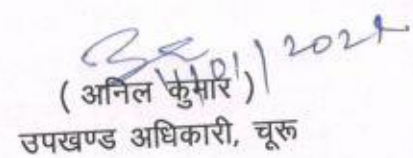 ( अनिल कुमार )
उपखण्ड अधिकारी, चूरू